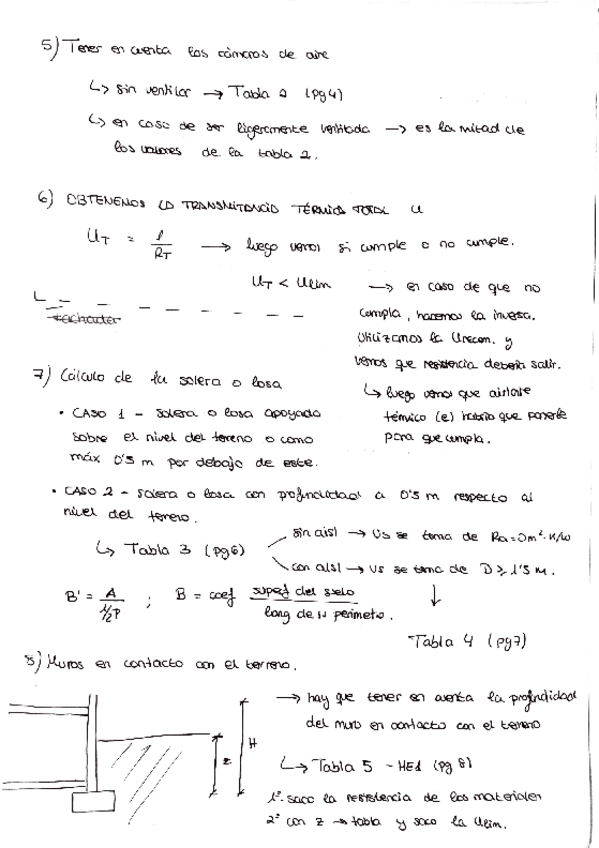 5) Tener en cuenta las cámaras de aire
↳ sin ventilar → Tabla 2 (pg4)
↳ en caso de ser ligeramente ventilada → es la mitad de
los valores de la tabla 2.
6) OBTENEMOS LA TRANSMITANCIA TÉRMICA TOTAL U
U_T = 1/R_T → luego vemos si cumple o no cumple.
U_T < Ulim → en caso de que no
cumpla, hacemos la inversa.
Utilizamos la Urecom. y
vemos que resistencia debería salir.
↳ luego vemos que aislante
térmico (e) habría que ponerle
para que cumpla.
7) Cálculo de la solera o losa
• CASO 1 - solera o losa apoyada
sobre el nivel del terreno o como
máx 0'5 m por debajo de este.
• CASO 2 - solera o losa con profundidad a 0'5 m respecto al
nivel del terreno.
↳ Tabla 3 (pg6)
sin aisl → Us se toma de Ra=0m².K/W
con aisl → Us se toma de D ≥ 1'5 m.
↓
Tabla 4 (pg7)
B' = A / ½P ; B = coef superf del suelo / long de su perímetro.
8) Muros en contacto con el terreno.
→ hay que tener en cuenta la profundidad
del muro en contacto con el terreno
z H
↳ Tabla 5 - HE1 (pg 8)
1º saco la resistencia de los materiales
2º con z → tabla y saco la Ulim.